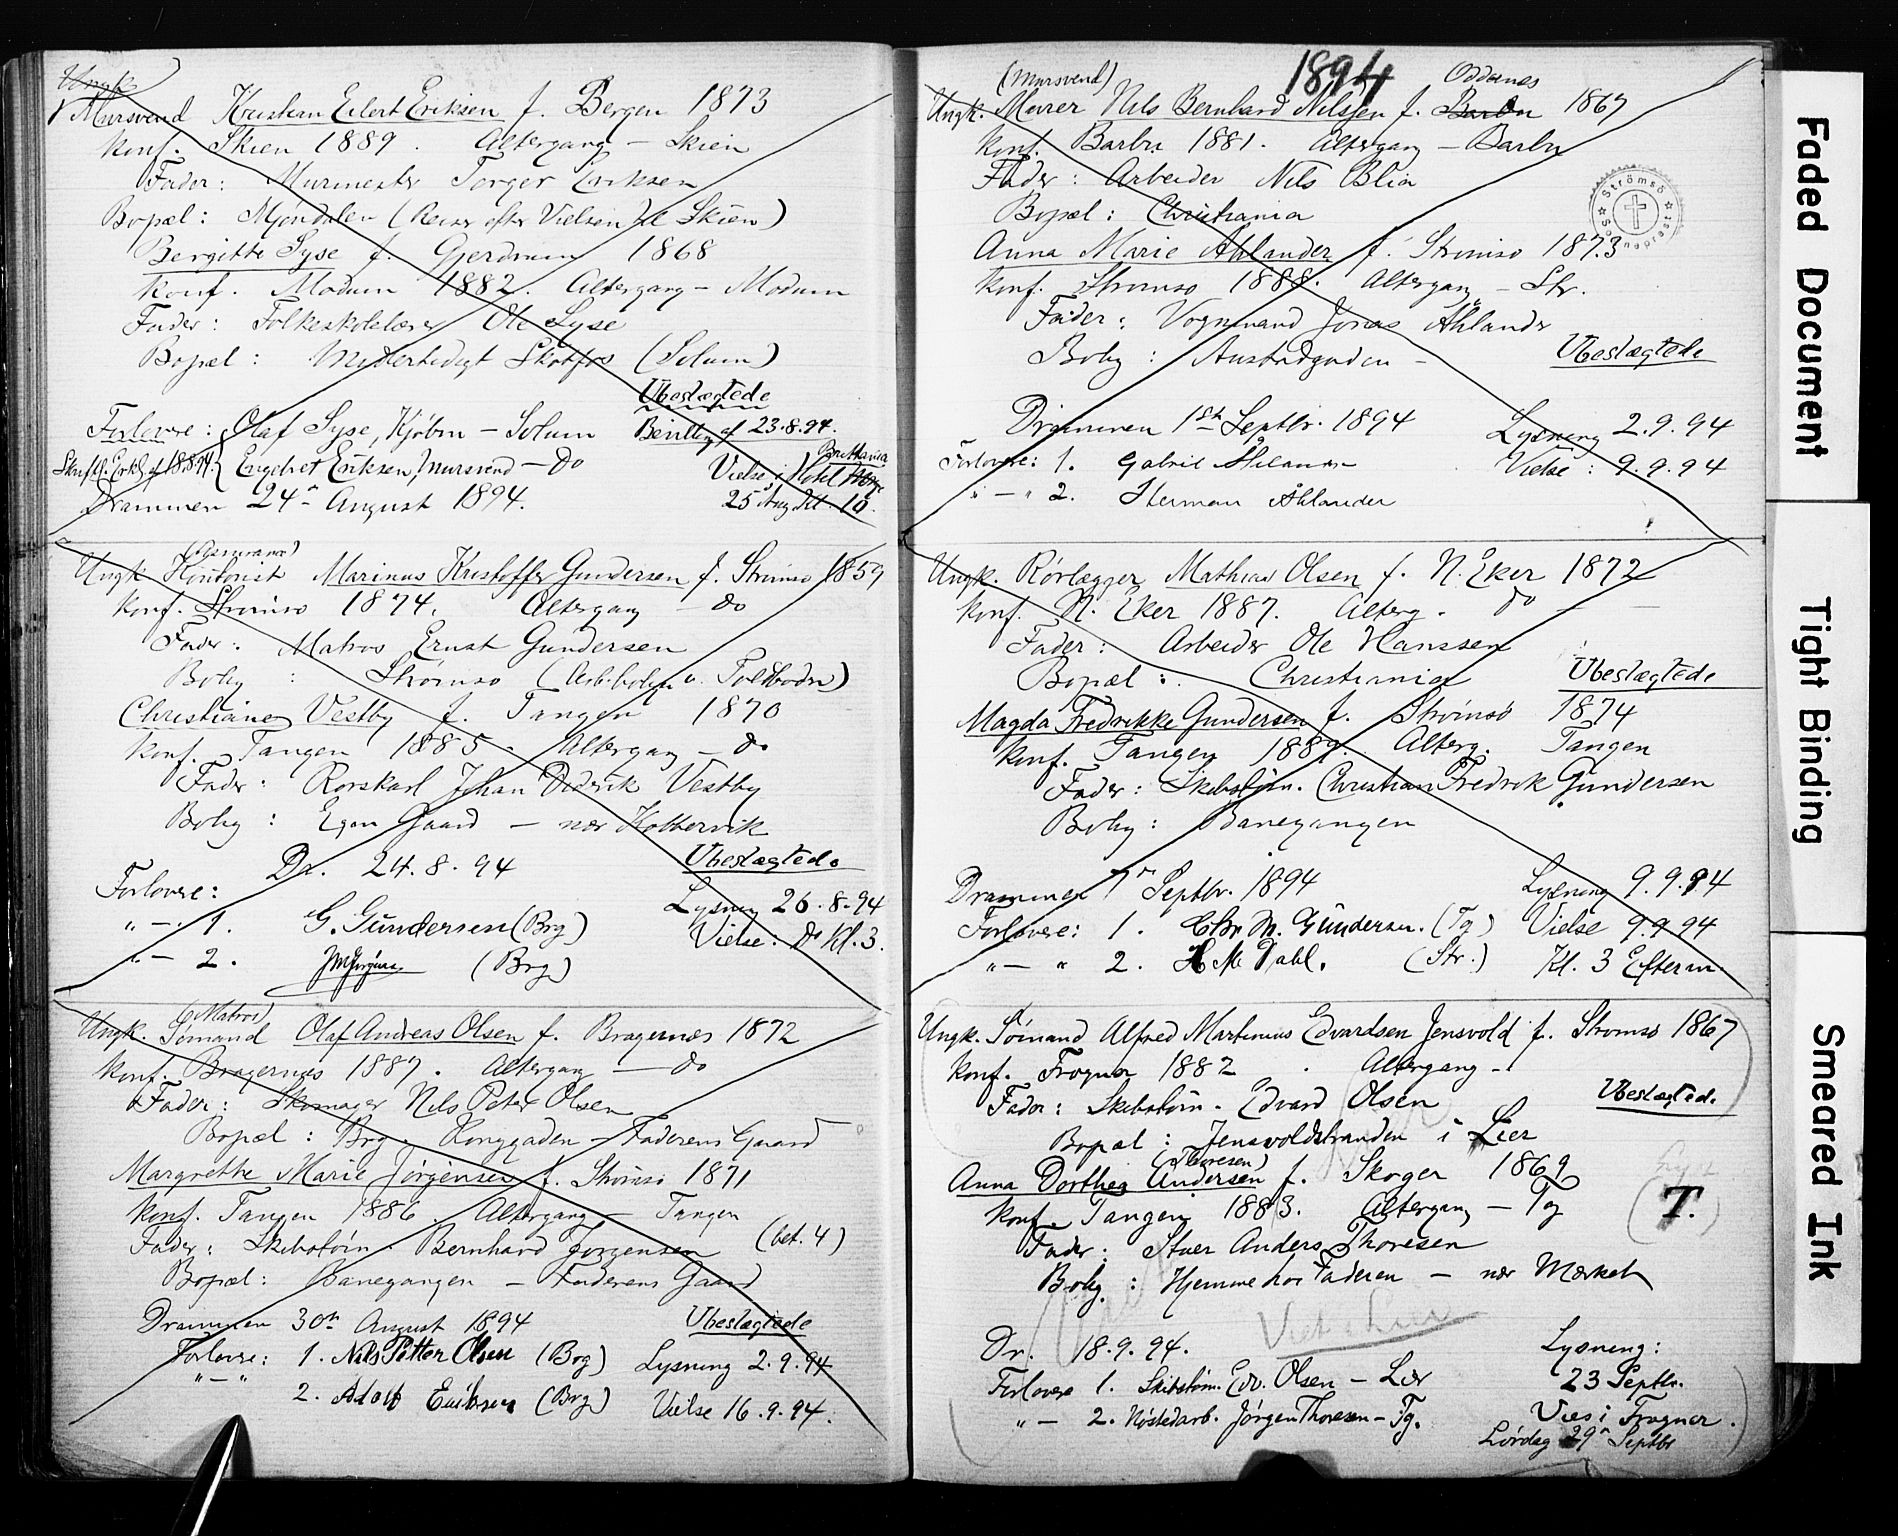 Ungk.
Mursvend Kristian Eilert Eriksen f. Bergen 1873
Konf. Skien 1889. Altergang — Skien
Fader: Murmester Torger Eriksen
Bopæl: Mjøndalen (Reiser efter Vielsen til Skien)
Bergitte Syse f. Gjerdrum 1868
Konf. Modum 1882. Altergang — Modum
Fader: Folkeskolelærer Ole Syse
Bopæl: Skotfos (Solum)
Ubeslægtede
Forlovere: Olaf Syse, Kjøbm — Solum Bevilling af 23.8.94.
Skriftl. Erkl. af 18.8.94. Engebret Eriksen, mursvend — Do Vielse i Hotel Britannia
Drammen 24de August 1894. 25 Aug Kl. 10.
(Assurance)
Ungk. Kontorist Marinus Kristoffer Gundersen f. Strømsø 1859
Konf. Strømsø 1874. Altergang — do
Fader: Matros Ernst Gundersen
Bolig: Strømsø (Arb.bolig v. Toldboden)
Christiane Vestby f. Tangen 1870
Konf. Tangen 1885. Altergang — do
Fader: Rorskarl Johan Didrik Vestby
Bolig: Egen Gaard — nær Kobbervik
Dr. 24.8.94 Ubeslægtede
Forlovere: Lysning 26.8.94
„ — 1. G. Gundersen (Brg) Vielse: Do Kl. 3.
„ — 2. (Brg)
(Matros)
Ungk. Sømand Olaf Andreas Olsen f. Bragernæs 1872
Konf. Bragernæs 1887. Altergang — do
Fader: Skomager Nils Peter Olsen
Bopæl: Brg. Konggaden — Faderens Gaard
Margrethe Marie Jørgensen f. Strømsø 1871
Konf. Tangen 1886 Altergang — Tangen
Fader: Skibstøm. Bernhard Jørgensen (bet. 4)
Bopæl: Banegangen — Faderens Gaard
Drammen 30te August 1894 Ubeslægtede
Forlovere: 1. Nils Petter Olsen (Brg) Lysning 2.9.94
„ — „
2. Adolf Eriksen (Brg) Vielse 16.9.94.
1894
(Mursvend) Oddenes
Ungk. Murer Nils Bernhard Nilssen f. Barbu 1867
Konf. Barbu 1881. Altergang — Barbu
Fader: Arbeider Nils Blia
Bopæl: Christiania
Strømsø Sognepræst
Anna Marie Ahlander f. Strømsø 1873
Konf. Strømsø 1888. Altergang — Str.
Fader: Vognmand Jonas Åhlander
Bolig: Austadgaden — Ubeslægtede
Drammen 1ste Septbr. 1894 Lysning 2.9.94
Forlovere: 1. Gabriel Vielse: 9.9.94
„ — „ 2. Herman Åhlander
Ungk. Rørlægger Mathias Olsen f. N. Eker 1872
Konf. N. Eker 1887. Alterg. do
Fader: Arbeider Ole Hanssen
Bopæl: Christiania Ubeslægtede
Magda Fredrikke Gundersen f. Strømsø 1874
Konf. Tangen 1889. Alterg. Tangen
Fader: Skibstøm. Christian Fredrik Gundersen
Bolig: Banegangen
Drammen 7de Septbr. 1894 Lysning 9.9.94
Forlovere: 1. Chr M. Gundersen. (Tg) Vielse 9.9.94
„ — „ 2. H M Dahl. (Str.) Kl. 3 Efterm.
Ungk. Sømand Alfred Martinius Edvardsen Jensvold f. Strømsø 1867
Konf. Frogner 1882. Altergang —
Fader: Skibstøm. Edvard Olsen Ubeslægtede
Bopæl: Jensvoldstranden i Lier
(Thoresen)
Anna Dorthea Andersen f. Skoger 1869
Konf. Tangen 1883. Altergang — Tg T.
Fader: Stuer Anders Thoresen
Bolig: Hjemme hos Faderen — nær Mærket
Dr. 18.9.94. Lysning:
Forlovere 1. Skibstøm. Edv. Olsen — Lier 23 Septbr.
„ — 2. Nøstedarb. Jørgen Thoresen — Tg. Vies i Frogner.
Lørdag 29de Septbr
Faded Document
Tight Binding
Smeared Ink